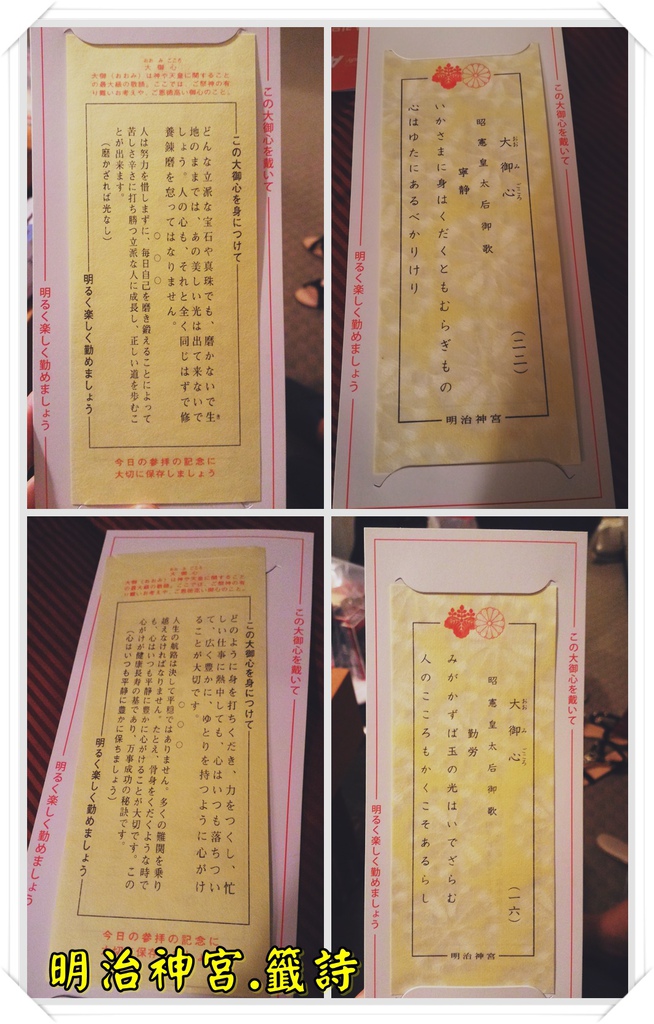 おお み こころ
大 御 心
大御(おおみ)は神や天皇に関すること
の最大級の敬語。ここでは、ご祭神の有
り難いお考えや、ご意徳高い御心のこと。
この大御心を身につけて
どんな立派な宝石や真珠でも、磨かないで生
地のままでは、あの美しい光は出て来ないで
しょう。人の心も、それと全く同じはずで修
養錬磨を怠ってはなりません。
○ ○ ○
人は努力を惜しまずに、毎日自己を磨き鍛えることによって
苦しさ辛さに打ち勝つ立派な人に成長し、正しい道を歩むこ
とが出来ます。
(磨かざれば光なし)
明るく楽しく勤めましょう
今日の参拝の記念に
大切に保存しましょう
この大御心を戴いて
明るく楽しく勤めましょう
この大御心を戴いて
大御心
おお み こころ
(二二)
昭憲皇太后御歌
寧静
いかさまに身はくだくともむらぎもの
心はゆたにあるべかりけり
明治神宮
明るく楽しく勤めましょう
おお み こころ
大 御 心
大御(おおみ)は神や天皇に関すること
の最大級の敬語。ここでは、ご祭神の有
り難いお考えや、ご意徳高い御心のこと。
この大御心を身につけて
どのように身を打ちくだき、力をつくし、忙
しい仕事に熱中しても、心はいつも落ちつい
て、広く豊かに、ゆとりを持つように心がけ
ることが大切です。
○ ○ ○
人生の航路は決して平穏ではありません。多くの難関を乗り
越えなければなりません。たとえ、骨身をくだくような時で
も、心はいつも平静に豊かに心がけることが大切です。この
心がけが健康長寿の基であり、万事成功の秘訣です。
(心はいつも平静に豊かに保ちましょう)
明るく楽しく勤めましょう
今日の参拝の記念に
この大御心を戴いて
明るく楽しく勤めましょう
この大御心を戴いて
大御心
おお み こころ
(一六)
昭憲皇太后御歌
勤労
みがかずば玉の光はいでざらむ
人のこころもかくこそあるらし
明治神宮
明るく楽しく勤めましょう
明治神宮.籤詩